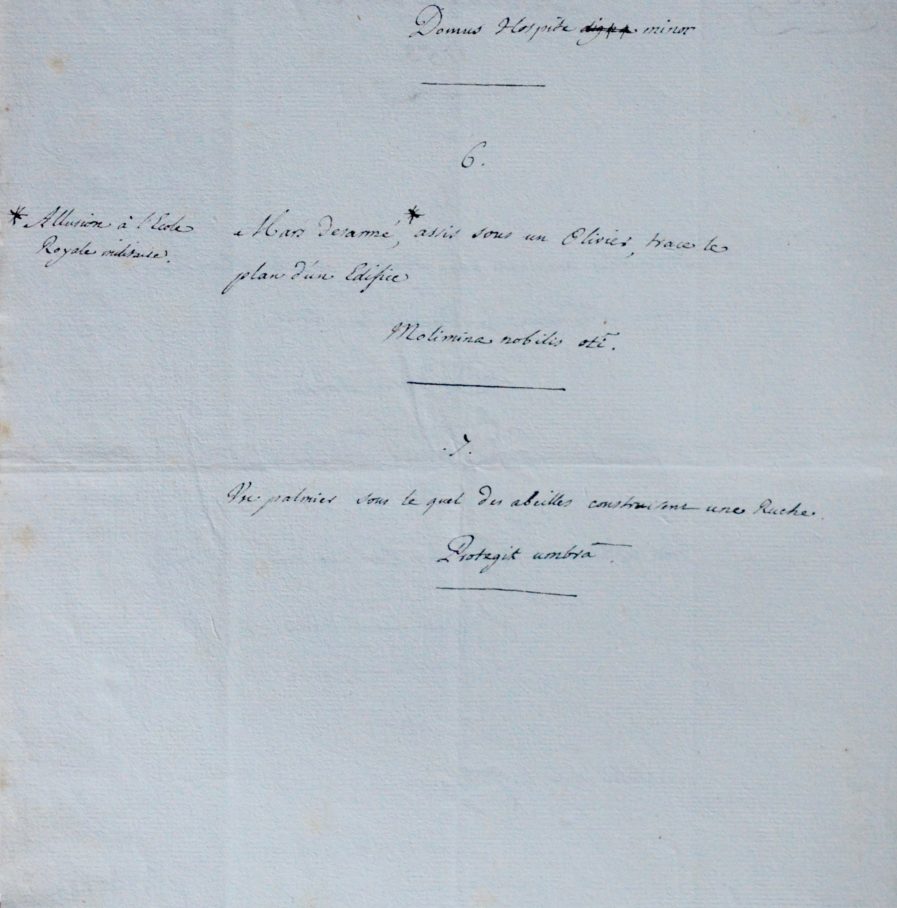 Domus Hospite minor
6.
* Allusion à l'Ecole
Royale militaire.
Mars desarmé,* assis sous un Olivier, trace le
plan d'un Edifice
Molimina nobilis otî.
.7.
Un palmier sous le quel des abeilles construisent une Ruche.
Protegit umbrâ.